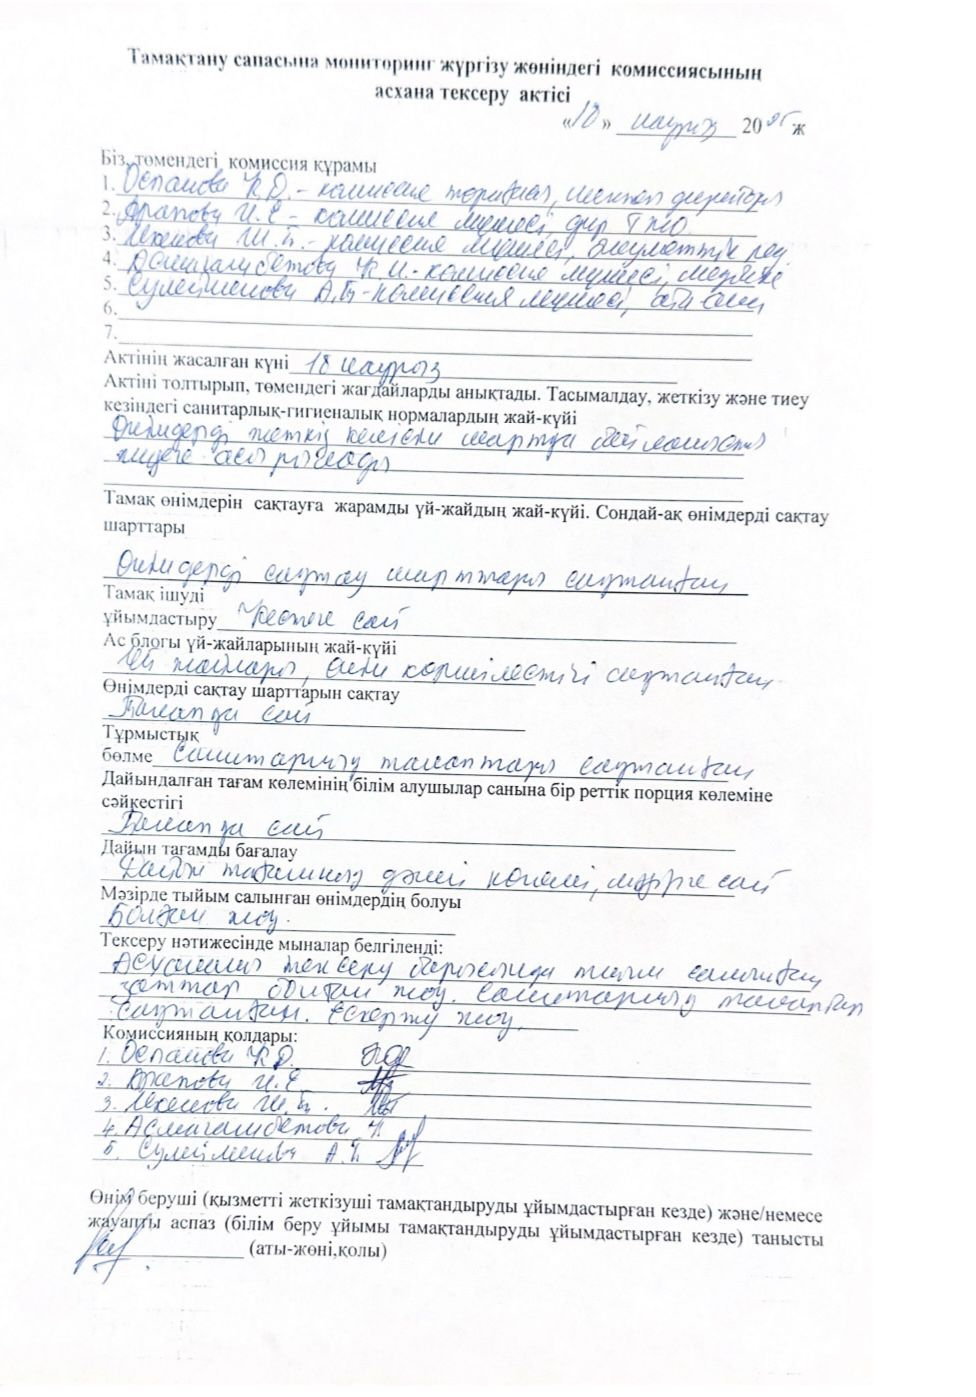 Тамақтану сапасына мониторинг жүргізу жөніндегі комиссиясының
асхана тексеру актісі
«18» наурыз 2025 ж
Біз, төмендегі комиссия құрамы
1. Оспанова Қ.Д. - комиссия төрайымы, мектеп директоры
2. Арапова И.Е - комиссия мүшесі, дир ТІЖО.
3. Ш.Б. - комиссия мүшесі, әлеуметтік пед.
4. Асмагамбетова Қ.И - комиссия мүшесі, медбике
5. Сулейменова А.Б - комиссия мүшесі, ата-ана
6.
7.
Актінің жасалған күні 18 наурыз
Актіні толтырып, төмендегі жағдайларды анықтады. Тасымалдау, жеткізу және тиеу
кезіндегі санитарлық-гигиеналық нормалардың жай-күйі
Өнімдерді жеткізу келісім шартқа байланысты
жүзеге асырылады
Тамақ өнімдерін сақтауға жарамды үй-жайдың жай-күйі. Сондай-ақ өнімдерді сақтау
шарттары
Өнімдерді сақтау шарттары сақталған
Тамақ ішуді
ұйымдастыру Кестеге сай
Ас блогы үй-жайларының жай-күйі
Үй жайлары, өнім көршілестігі сақталған.
Өнімдерді сақтау шарттарын сақтау
Талапқа сай
Тұрмыстық
бөлме Санитарлық талаптары сақталған
Дайындалған тағам көлемінің білім алушылар санына бір реттік порция көлеміне
сәйкестігі
Талапқа сай
Дайын тағамды бағалау
Дайын тағамның дәмі көлемі, мәзірге сай
Мәзірде тыйым салынған өнімдердің болуы
Болған жоқ.
Тексеру нәтижесінде мыналар белгіленді:
Асхананы тексеру барысында тыйым салынған
заттар болған жоқ. Санитарлық талаптар
сақталған. Ескерту жоқ.
Комиссияның қолдары:
1. Оспанова Қ.Д.
2. Арапова И.Е
3. Ш.Б.
4. Асмагамбетова Қ
5. Сулейменова А.Б
Өнім беруші (қызметті жеткізуші тамақтандыруды ұйымдастырған кезде) және/немесе
жауапты аспаз (білім беру ұйымы тамақтандыруды ұйымдастырған кезде) танысты
(аты-жөні,қолы)